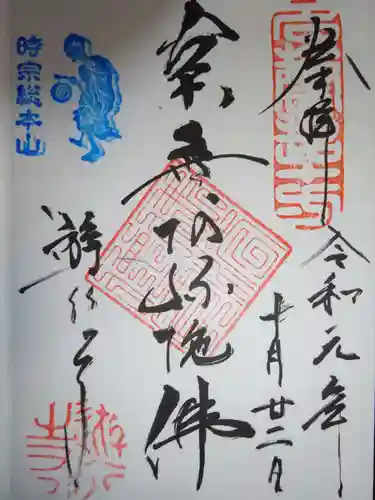 奉拝
令和元年
十月廿二日
南無阿弥陀佛
時宗総本山
遊行寺